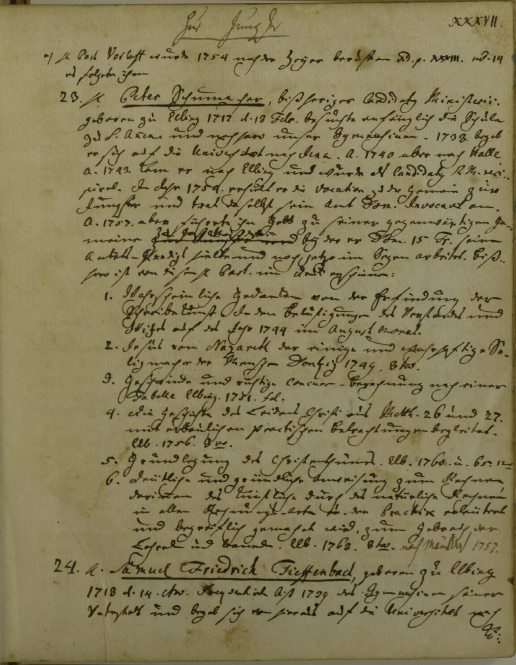 Zur Jungfer
XXXVII
*) H. Past. Vorhoff wurde 1754 nach der Heyer berufen vid. p. XXXIII. no. 14
u folgete ihm
23. H. Peter Schumacher, bißheriger Candidatg Ministerii.
gebohren zu Elbing 1717 d. 18 Febr. besuchte anfänglich die Schule
zu S. Annen und nachher unser Gymnasium. 1738 begab
er sich auf die Universitæt nach Jena. A. 1740 aber nach Halle
A. 1743 kam er nach Elbing und wurde als Candidatg R. Min. reci-
piret. Im Jahr 1754 erhielt er die Vocation der Gemein zur
Jungfer und trat daselbst sein Amt Dom. an.
A. 1757. aber führete ihn Gott zu seiner gegenwärtigen Ge-
meine und bey der er Dom. 15 Tr. seine
Antritts-Predigt hielte und noch jetzo im Segen arbeitet. Biß-
her ist von diesem H. Past. im Druck erschienen:
1. Wahrscheinliche Gedanken von der Erfindung der
Schreibkunst in den Belustigungen des Verstandes und
Witzes auf das Jahr 1744 im August Monat.
2. Jesus von Nazareth der einige und wahrhaftige Se-
ligmacher der Menschen Dantzig 1749. 8vo.
3. Geschwinde und richtige Concurs-Berechnung nach einer
Tabelle Elbing. 1751. fol.
4. Die Geschichte des Leidens Christi aus Matth. 26 und 27.
mit erbaulichen practischen Betrachtungen begleitet.
Elb. 1756. 8vo.
5. Grundlegung des Christenthums. Elb. 1760. u. 65. 12mo
6. Deutliche und gründliche Anweisung zum Rechnen
darinnen das Künstliche durch das natürliche Rechnen
in allen Rechnungs-Arten der Practica erläutert
und begreiflich gemachet wird, zum Gebrauch der
Lehrer und Elb. 1763. 8vo. 1757.
24. H. Samuel Friedrich Tieffenbach, gebohren zu Elbing
1718 d. 14. 1739 das Gymnasium seiner
Vaterstadt und begab sich hierauf auf die Universitet nach